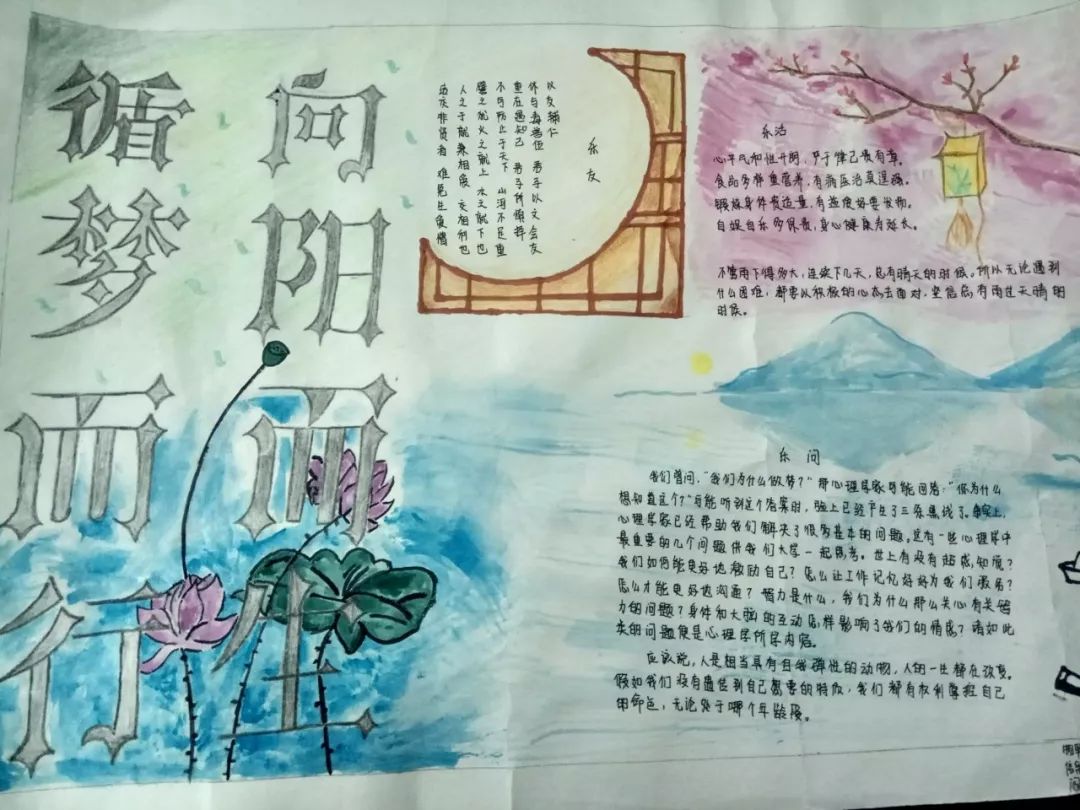 向阳而生
循梦而行
乐友
以友辅仁
君子以文会友
重在遇知己 君子所慎择
不可防止于天下 山河不足重
譬之就火之就上 水之就下也
人之于就兼相爱 交相利也
友非贤者 难免生爱憎
乐活
心平气和性开朗，严于律己贵有章。
食品多样重营养，有病医治莫迟疑。
锻炼身体贵适量，有益便好要发扬。
自娱自乐多保贵，身心健康寿延长。
不管雨下得多大，连续下几天，总有晴天的时候。所以无论遇到
什么困难，都要以积极的心态去面对，坚信总有雨过天晴的
时候。
乐 问
我们曾问，“我们为什么做梦？”那心理学家可能回答：“你为什么
想知道这个？”可能听到这个答案时，脸上已经产生了三条黑线了。事实上，
心理学家已经帮助我们解决了很多基本的问题。这有一些心理学中
最重要的几个问题供我们大家一起思考。世上有没有超感知觉？
我们如何能更好地激励自己？怎么让工作记忆好好为我们服务？
怎么才能更好地沟通？智力是什么，我们为什么那么关心有关智
力的问题？身体和大脑的互动怎样影响了我们的情感？诸如此
类的问题便是心理学所学内容。
应该说，人是相当具有自我弹性的动物，人的一生都在改变。
假如我们没有遗传到自己需要的特质，我们都有权利掌控自己
的命运，无论处于哪个年龄段。